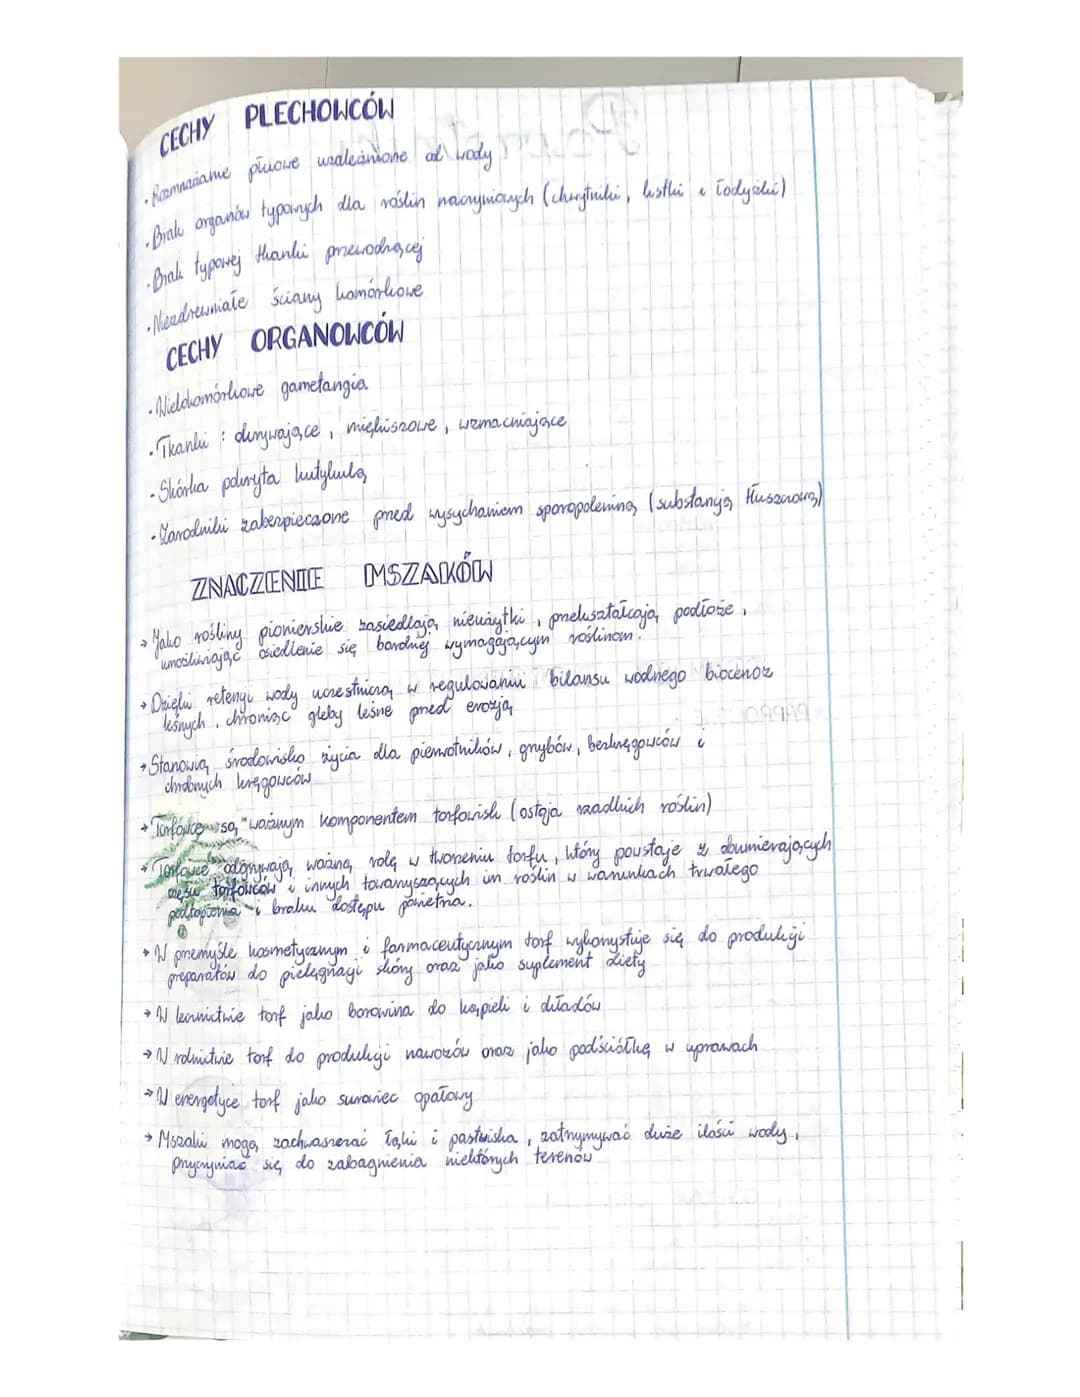 CECHY PLECHOWCÓW
· Rozmnażanie płciowe uzależnione od wody
· Brak organów typowych dla roślin naczyniowych (chwytniki, listki i łodyżki)
· Brak typowej tkanki przewodzącej
· Niezdrewniałe ściany komórkowe
CECHY ORGANOWCÓW
· Wielokomórkowe gametangia
· Tkanki : okrywające, miękiszowe, wzmacniające
· Skórka pokryta kutykulą
· Zarodniki zabezpieczone przed wysychaniem sporopoleniną (substancją tłuszczową)
ZNACZENIE MSZAKÓW
→ Jako rośliny pionierskie zasiedlają nieużytki, przekształcają podłoże,
umożliwiając osiedlenie się bardziej wymagającym roślinom.
→ Dzięki retencji wody uczestniczą w regulowaniu bilansu wodnego biocenoz
leśnych, chroniąc gleby leśne przed erozją
→ Stanowią środowisko życia dla pierwotniaków, grzybów, bezkręgowców i
drobnych kręgowców
→ Torfowce są ważnym komponentem torfowisk (ostoja rzadkich roślin)
→ Torfowce odgrywają ważną rolę w tworzeniu torfu, który powstaje z obumierających
części torfowców i innych towarzyszących im roślin w warunkach trwałego
podtopienia i braku dostępu powietrza.
→ W przemyśle kosmetycznym i farmaceutycznym torf wykorzystuje się do produkcji
preparatów do pielęgnacji skóry oraz jako suplement diety
→ W lecznictwie torf jako borowina do kąpieli i okładów
→ W rolnictwie torf do produkcji nawozów oraz jako podściółkę w uprawach
→ W energetyce torf jako surowiec opałowy
→ Mszaki mogą zachwaszczać łąki i pastwiska, zatrzymywać duże ilości wody,
przyczyniać się do zabagnienia niektórych terenów